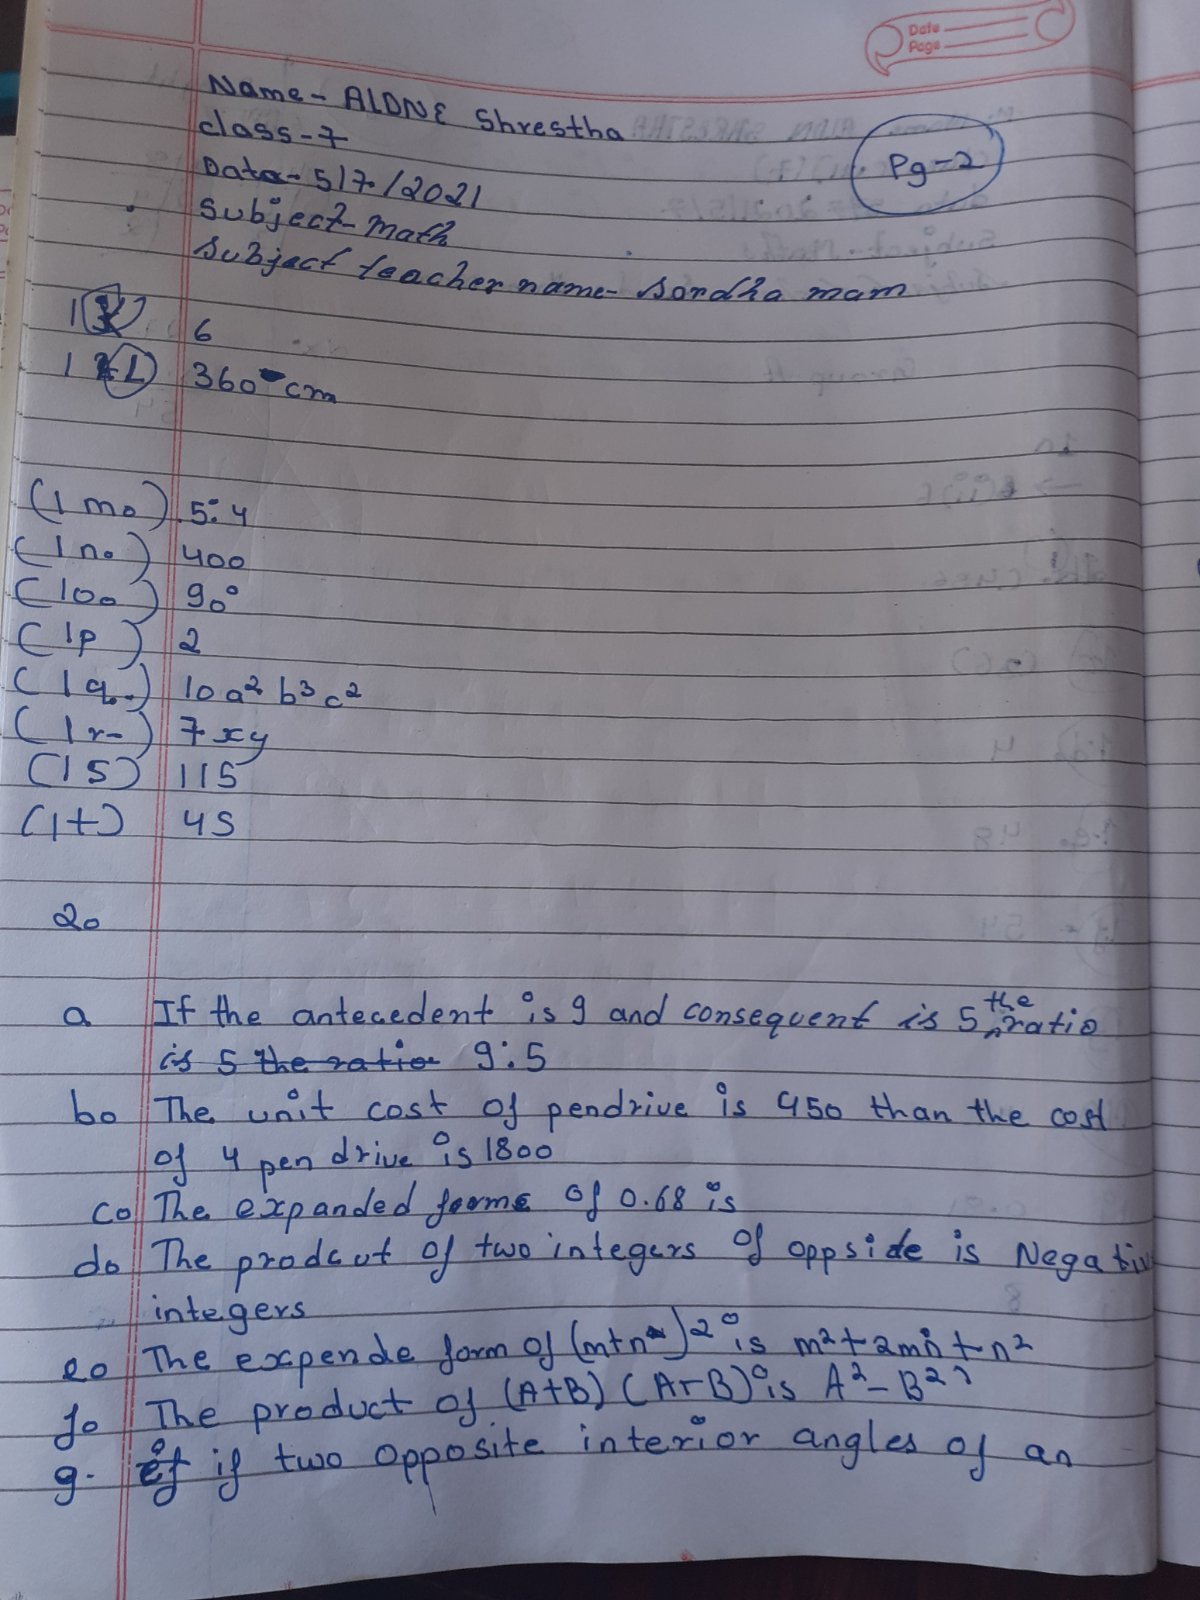 Date
Page
Name- AIDNE Shrestha
class-7
Pg-2
Data- 5/7/2021
Subject- Math
Subject teacher name- Sordha mam
1 6
1 L 360 cm
(1 mo) 5:4
(1 no) 400
(1oo) 90°
(1p) 2
(1q.) 10 a² b³ c²
(1r-) 7xy
(1s) 115
(1t) 45
2o
a If the antecedent is 9 and consequent is 5 the ratio
is 5 the ratio 9:5
bo The unit cost of pendrive is 450 than the cost
of 4 pen drive is 1800
co The expanded forms of 0.68 is
do The prodcut of two integers of oppside is Negativ
integers
eo The expende form of (m+n)2 is m²+2mn+n²
fo The product of (A+B) (A+B) is A²-B²
g. if if two opposite interior angles of an